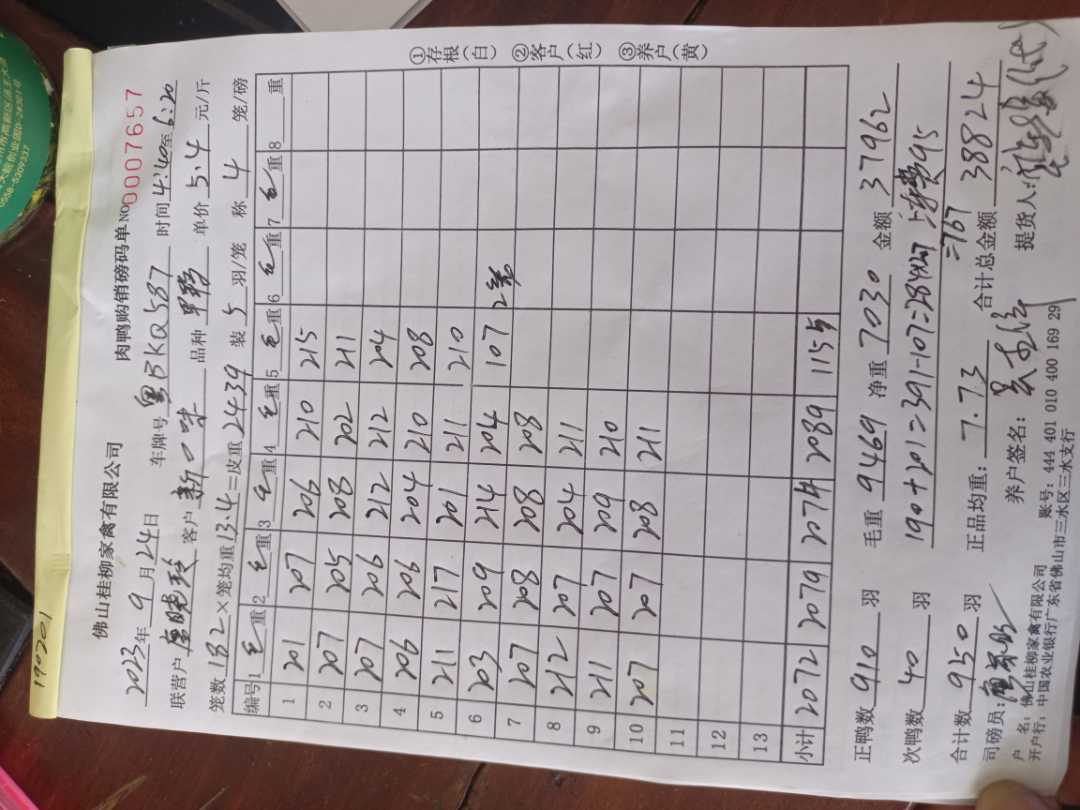 190201
佛山桂柳家禽有限公司 肉鸭购销磅码单 NO 0007657
2023年 9月 24日 车牌号 粤BKQ587 时间 4:40至6:20
联营户 唐晓玲 客户 新口味 品种 单价 5.4 元/斤
笼数 182 × 笼均重 13.4 = 皮重 2439 装 5 羽/笼 称 4 笼/磅
编号 1 毛重 2 毛重 3 毛重 4 毛重 5 毛重 6 毛重 7 毛重 8 重
1 201 207 206 210 215
2 207 205 208 202 211
3 207 206 212 212 204
4 206 206 204 210 208
5 211 217 201 211 210
6 203 209 214 204 107 2笼
7 207 208 208 208
8 212 207 204 211
9 211 207 209 210
10 207 207 208 211
11
12
13
小计 2072 2079 2074 2089 1155
①存根(白) ②客户(红) ③养户(黄)
正鸭数 910 羽 毛重 9469 净重 7030 金额 37962
次鸭数 40 羽 190+201=391-107=284 费95
=767
合计数 950 羽 正品均重: 7.73 合计总金额 38824
司磅员: 养户签名: 提货人: (代)
户 名: 佛山桂柳家禽有限公司 账号: 444 401 010 400 169 29
开户行: 中国农业银行广东省佛山市三水区三水支行
0558-5309337